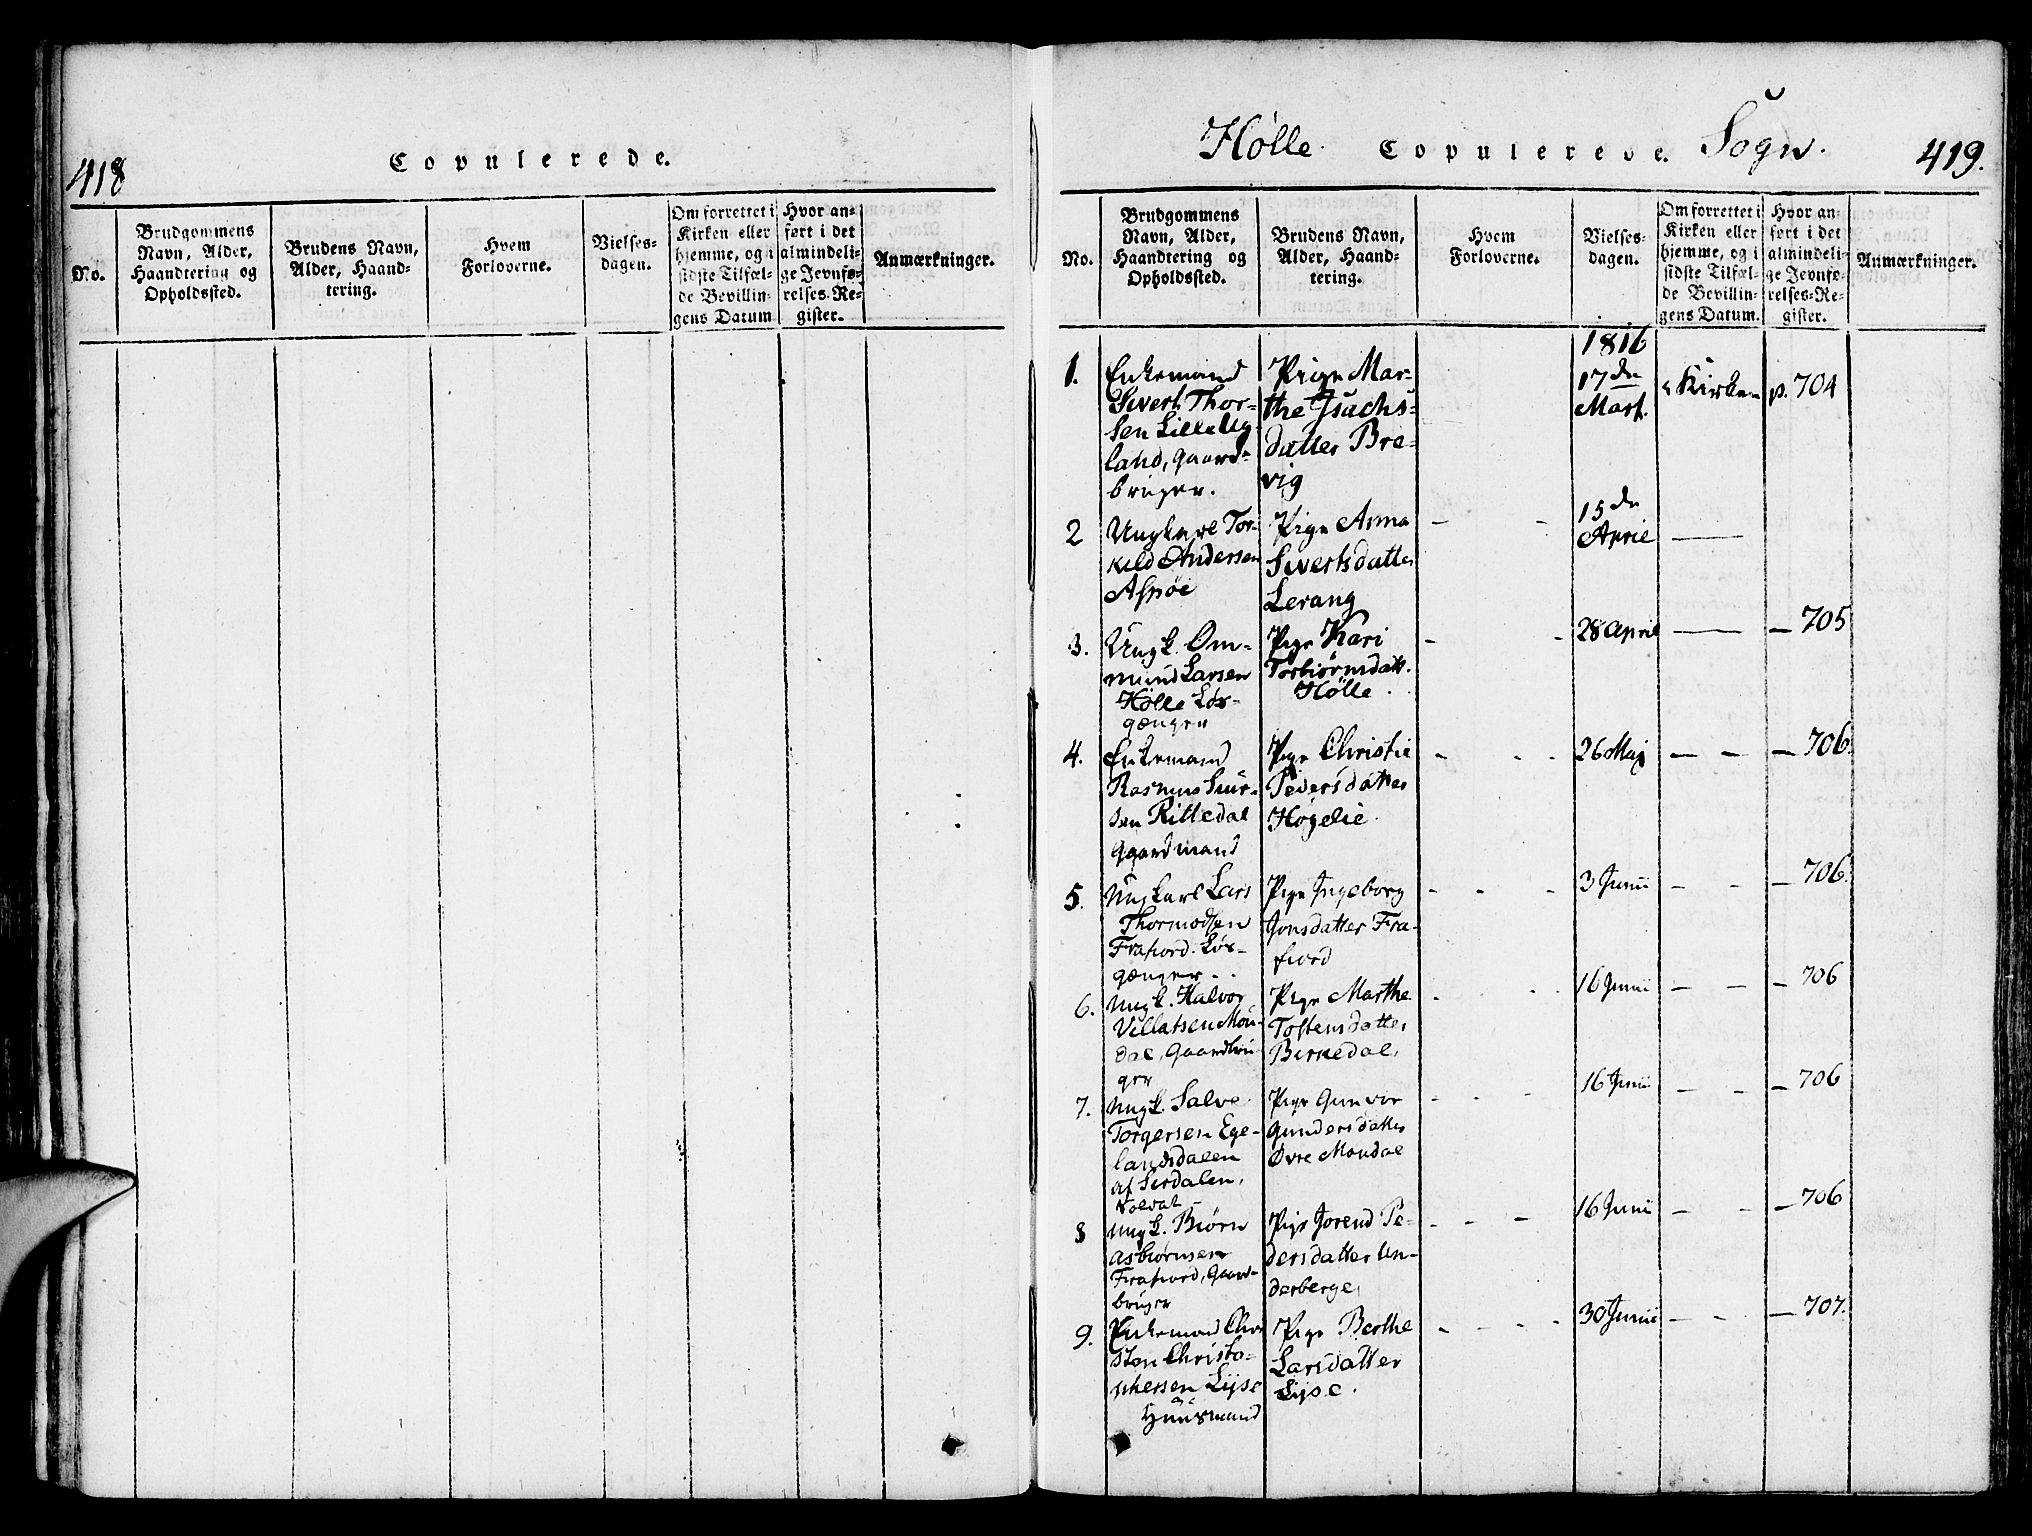 418
Copulerede.
No.
Brudgommens
Navn, Alder,
Haandtering og
Opholdssted.
Brudens Navn,
Alder, Haand-
tering.
Hvem
Forloverne.
Vielses-
dagen.
Om forrettet i
Kirken eller
hjemme, og i
sidste Tilfæl-
de Bevillin-
gens Datum
Hvor an-
ført i det
almindeli-
ge Jevnfø-
relses-Re-
gister.
Anmærkninger.
Hølle Copulerede. Sogn.
419.
No.
Brudgommens
Navn, Alder,
Haandtering og
Opholdssted.
Brudens Navn,
Alder, Haand-
tering.
Hvem
Forloverne.
Vielses-
dagen.
Om forrettet i
Kirken eller
hjemme, og i
sidste Tilfæl-
de Bevillin-
gens Datum.
Hvor an-
ført i det
almindeli-
ge Jevnfø-
relses-Re-
gister.
Anmærkninger.
1.
Enkemand
Sivert Thor-
sen Lille
land, Gaard-
bruger.
Pige Mar-
the Isachs-
datter Bre-
vig
1816
17de
Mart.
i Kirken
p. 704
2
Ungkarl Tor-
kild Andersen
Aspøe
Pige Anna
Sivertsdatter
Lerang
15de
April
3.
Ungk. Om-
mund Larsen
Hølle Løs-
gænger
Pige Kari
Torbiørnsdatt.
Hølle.
28 April
705
4.
Enkemand
Rasmus
sen Rittedal
Gaardmand
Pige Christie
Pedersdatter
Høgelie.
26 Maj
706.
5.
Ungkarl Lars
Thormodsen
Frafiord. Løs-
gænger.
Pige Ingeborg
Jonsdatter Fra-
fiord
3 Junii
706.
6.
Ungk. Halvor
Villatsen Mon-
dal, Gaardbru-
ger
Pige Marthe
Tostensdatter
Birkedal.
16 Junii
706
7.
Ungk. Salve
Torgersen Ege-
landsdalen
af Sirdalen,
Soldat
Pige Gunvor
Gundersdatter
Øvre Mondal
16 Junii
706
8
Ungk. Biørn
Asbiørnsen
Frafiord, Gaard-
bruger
Pige Jorend Pe-
dersdatter Un-
derberge.
16 Junii
706
9.
Enkemand Chri
sten Christo-
phersen Lyse
Huusmand
Pige Berthe
Larsdatter
Lyse.
30 Junii
707.